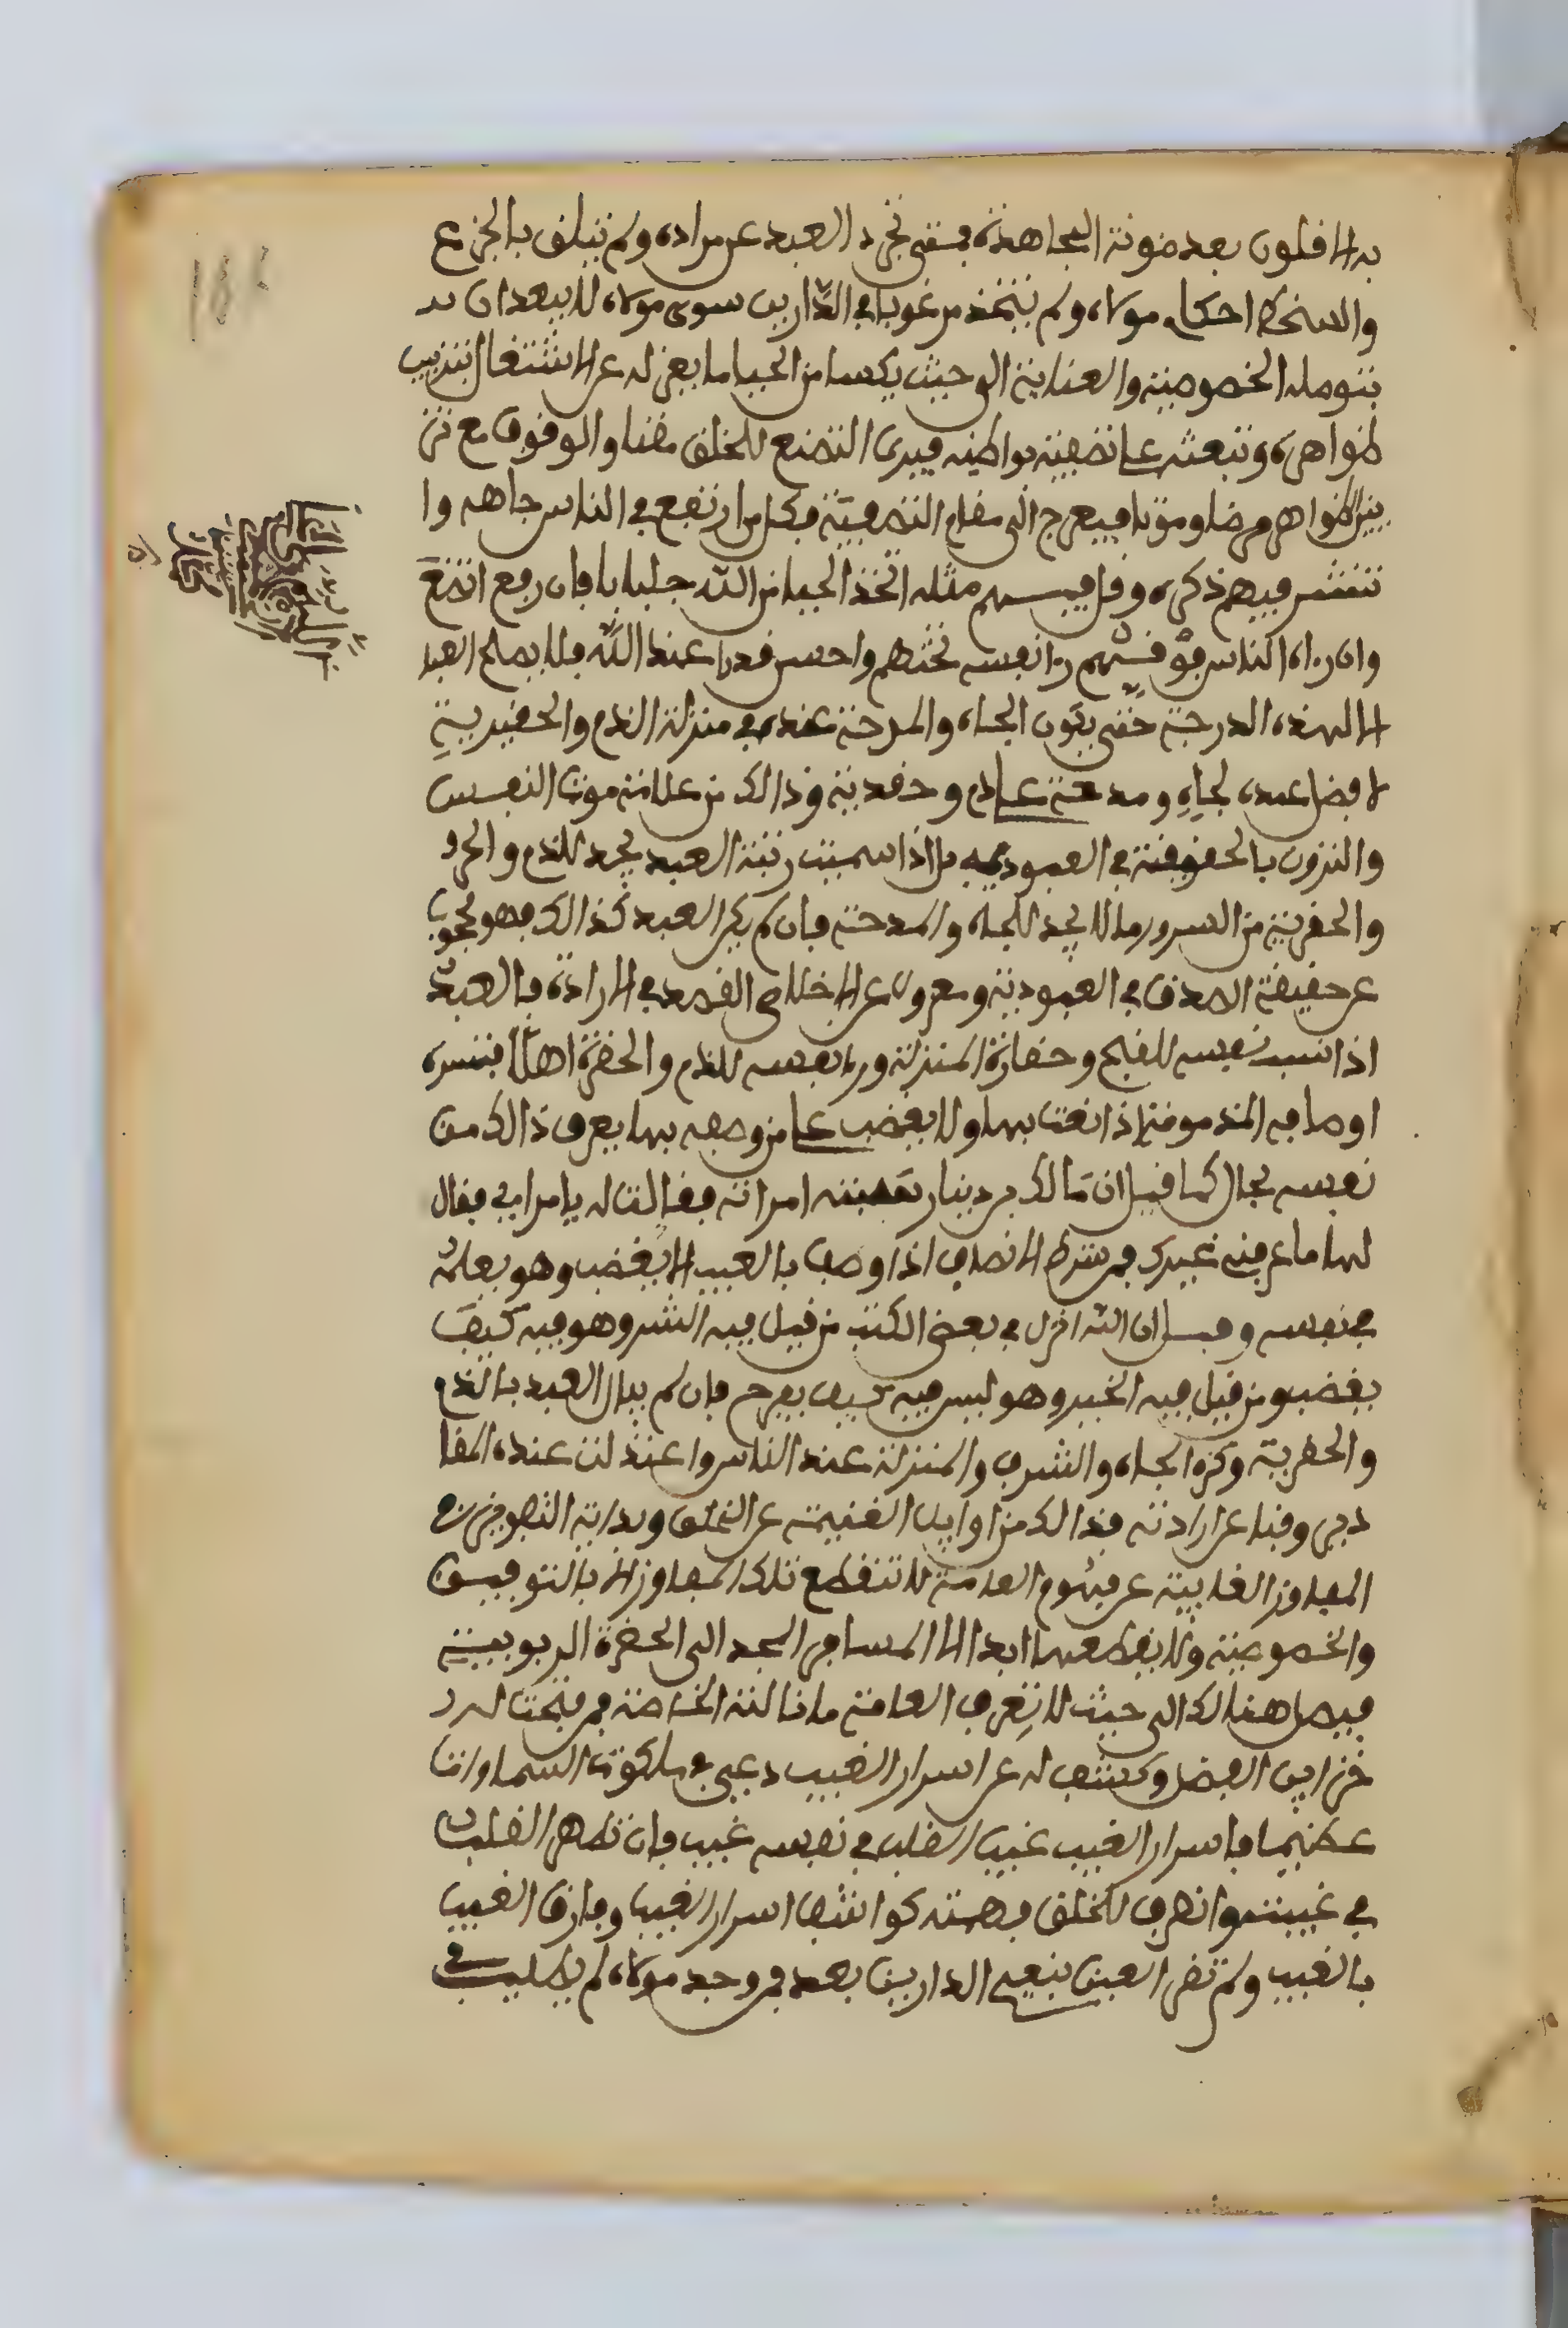 به الا فلون بعد مونة المجاهدة فمتى تجرد العبد عن مراده ولم يتلق بالجزع
والسخط احكام مولاه ولم يتخذ مرغوبا في الدارين سوى مولاه لا يبعد ان
الخصوصية والعناية الى حيث يكسا من الحيا ما يعزله عن الاشتغال بتزيين
ظواهره وتبعثه على تصفية بواطنه فيرى التصنع للخلق مقتا والوقوف مع تز
يين الظواهر مرضا وموتا فيعرج الى مقام التصفية فكل من ارتفع في الناس جاهه وا
نتشر فيهم ذكره وقل فيهم مثله اتخذ الحيا من الله جلبابا فان رفع اتضع
وان رءاه الناس فوقهم رءا نفسه تحتهم واخس قدرا عند الله فلا يصلح العبد
الا لهذه الدرجة حتى يكون الجاه والمدحة عنده في منزلة الذم والحقيرية
لا فضل عنده لجاه ومدحة على ذم وحقرية وذالك من علامة موت النفس
والنزول بالحقيقة في العبودية بل اذا سمت رتبة العبد يجد للذم والحر و
والحقرية من السرور ما لا يجد للجاه والمدحة فان لم يكن العبد كذالك فهو محجوب
عن حقيقة الصدق في العبودية ومعزول عن الاخلاص القصد في الارادة فالعبد
اذا نسب نفسه للقبح وحقارة المنزلة ورءا نفسه للذم والحقرة اهلا فتسره
اوصافه المذمومة اذا نعت بها ولا يغضب على من وصفه بها يعرف ذالك من
نفسه بحال كما قيل ان مالك بن دينار امراته فقالت له يا مراءي فقال
لها ما عرفني غيرك فمن شرط الانصاف اذا وصف بالعيب الا يغضب وهو يعلمه
في نفسه وقيل ان الله انزل في بعض الكتب من قيل فيه الشر وهو فيه كيف
يغضب ومن قيل فيه الخير وهو ليس فيه كيف يفرح فان لم يبال العبد بالذم
والحقرية وكره الجاه والشرف والمنزلة عند الناس واعتدلت عنده المقا
دير وفنا عن ارادته فذالك من اوايل الغيبة عن الخلق وبداية التصوف في
المفاوز الغايبة عن فهوم العامة لا تنقطع تلك المفاوز الا بالتوفيق
والخصوصية ولا يقطعها ابدا الا المسافر المجد الى الحضرة الربوبية
فيصل هنالك الى حيث لا تعرف العامة ما نالته الخاصة فمن فتحت له
خزاين الفضل وكشف له عن اسرار الغيب دعي في ملكوت السماوات
عظيما فاسرار الغيب غيب القلب في نفسه غيب فان ظهر القلب
في غيبته وانصرف للخلق بهمته كوشف اسرار الغيب وفارق الغيب
بالغيب ولم تقر العين بنعيم الدارين بعد فمن وجد مولاه لم يطلب في